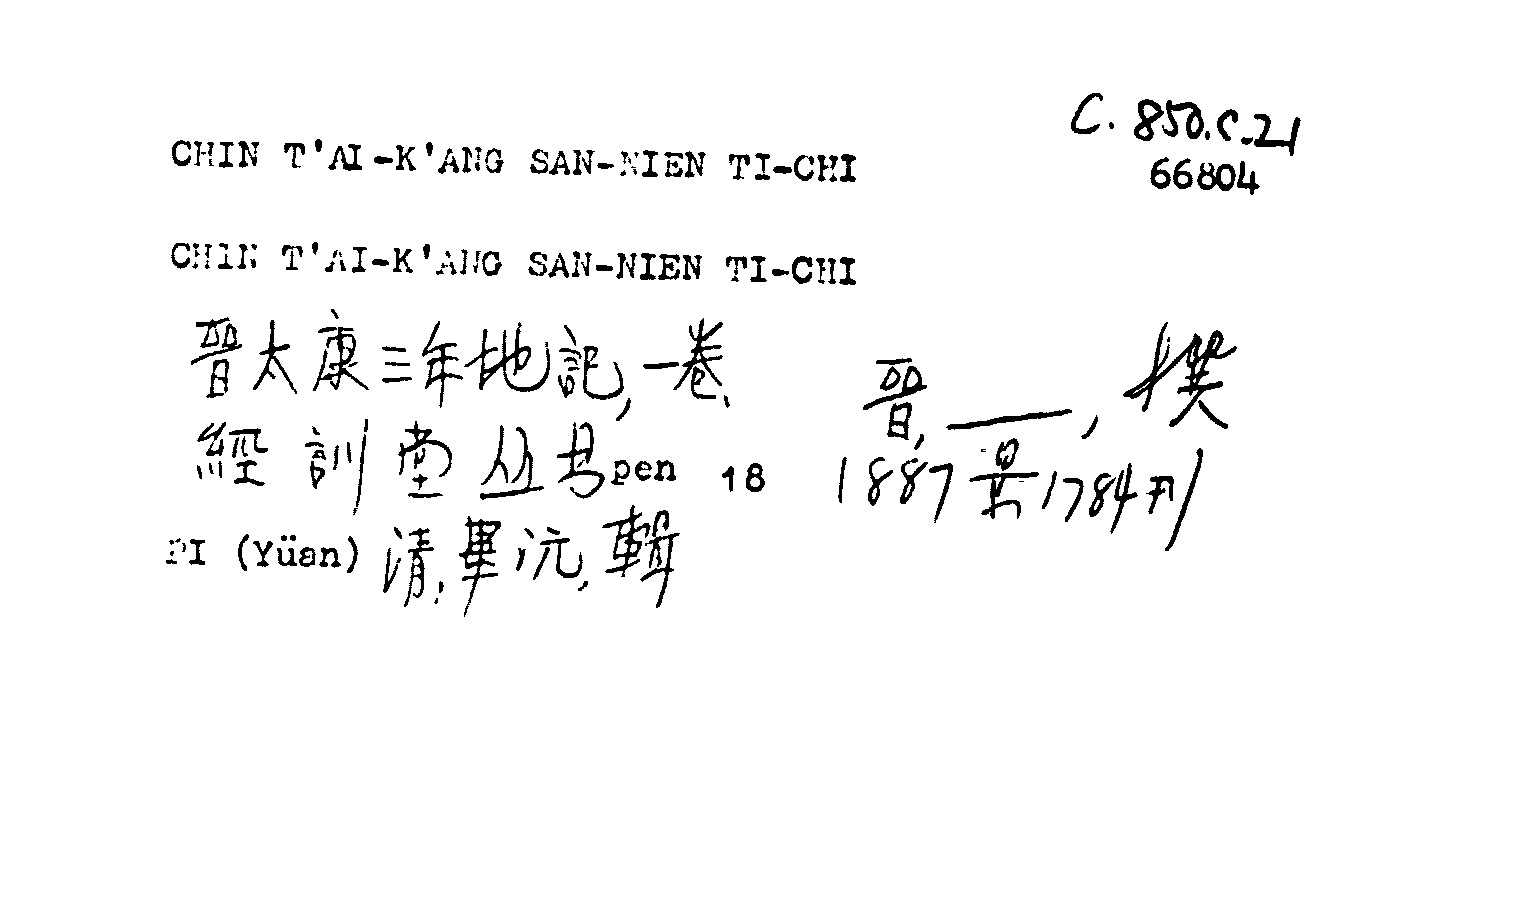 C. 850.c.21
66804
CHIN T'AI-K'ANG SAN-NIEN TI-CHI
CHIN T'AI-K'ANG SAN-NIEN TI-CHI
晉太康三年地記, 一卷. 晉, ——, 撰
經訓堂丛书pen 18 1887景1784刊
PI (Yüan) 清, 畢沅, 輯